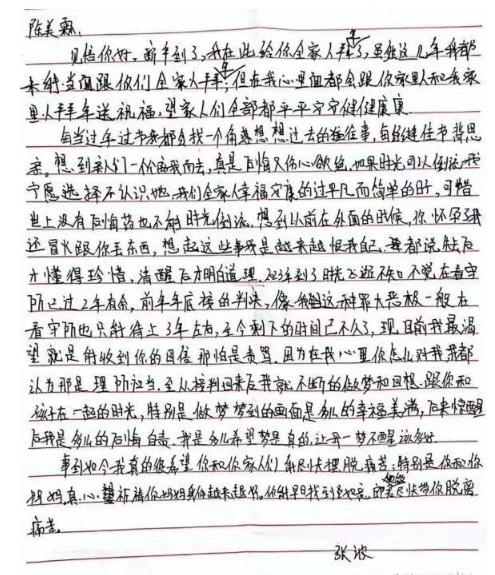 陈美霖:
见信你好。新年到了,我在此给你全家人拜年了,虽然这几年我都
未能当面跟你们全家人拜年,但在我心里面都会跟你家里人和我家
里人拜年送祝福,望家人们全部都平平安安健健康康
每当过年过节我都会找一个角落想想过去的往事,自己继佳节哲思
亲。想到亲人们一个个离我而去,真是后悔又伤心欲绝,如果时光可以倒流,我
宁愿选择不认识她,我们全家人幸福安康的过平凡而简单的日子,可惜
世上没有后悔药也不能时光倒流。想到以前在外面的时候,你怀孕了我
还冒火跟你丢东西,想起这些事我是越来越恨我自己。人都说失去后
才懂得珍惜,清醒后才明白道理,2023年到了时光飞逝,不知不觉在看守
所已过2年有余,前年年底接的判决,像我这种罪大恶极一般在
看守所也只能待上3年左右,至今剩下的时间已不久了,现目前我最渴
望就是能收到你的回信那怕是责骂。因为在我心里你怎么对我我都
认为那是理所应当,至从接判回来后我就不断的做梦和回想跟你和
孩子在一起的时光,特别是做梦梦到的画面是多么的幸福美满,后来惊醒
后我是多么的后悔自责,我是多么希望梦是真的,让我一梦不醒该多好。
事到如今我真的很希望你和你家人们能尽快摆脱痛苦,特别是你和你
妈妈,真心祈福你妈妈身体越来越好。你能早日找到
痛苦。
张波